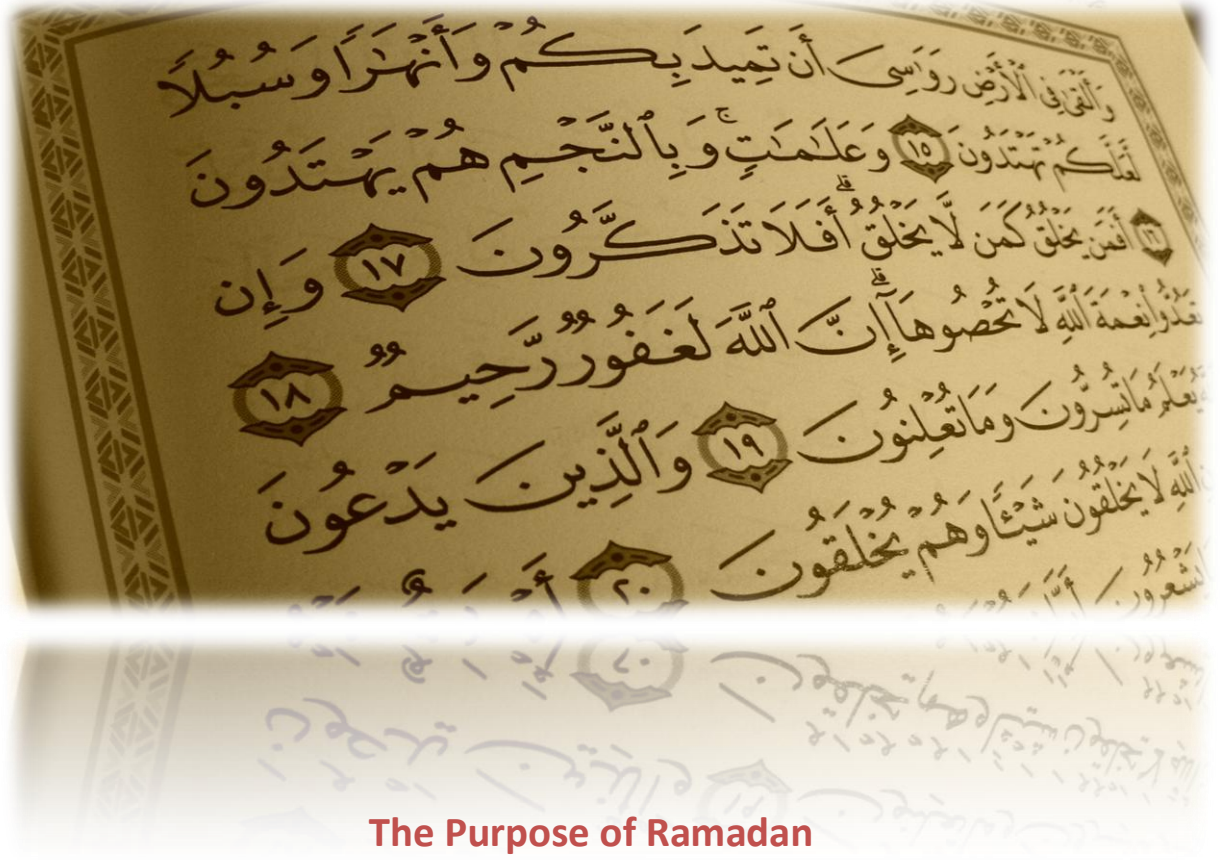 وَأَلْقَىٰ فِى ٱلْأَرْضِ رَوَٰسِىَ أَن تَمِيدَ بِكُمْ وَأَنْهَٰرًا وَسُبُلًا
لَّعَلَّكُمْ تَهْتَدُونَ ١٥ وَعَلَٰمَٰتٍ ۚ وَبِٱلنَّجْمِ هُمْ يَهْتَدُونَ
١٦ أَفَمَن يَخْلُقُ كَمَن لَّا يَخْلُقُ ۗ أَفَلَا تَذَكَّرُونَ ١٧ وَإِن
تَعُدُّوا۟ نِعْمَةَ ٱللَّهِ لَا تُحْصُوهَآ ۗ إِنَّ ٱللَّهَ لَغَفُورٌ رَّحِيمٌ ١٨
يَعْلَمُ مَا تُسِرُّونَ وَمَا تُعْلِنُونَ ١٩ وَٱلَّذِينَ يَدْعُونَ
ٱللَّهِ لَا يَخْلُقُونَ شَيْـًٔا وَهُمْ يُخْلَقُونَ ٢٠
يَشْعُرُونَ
The Purpose of Ramadan